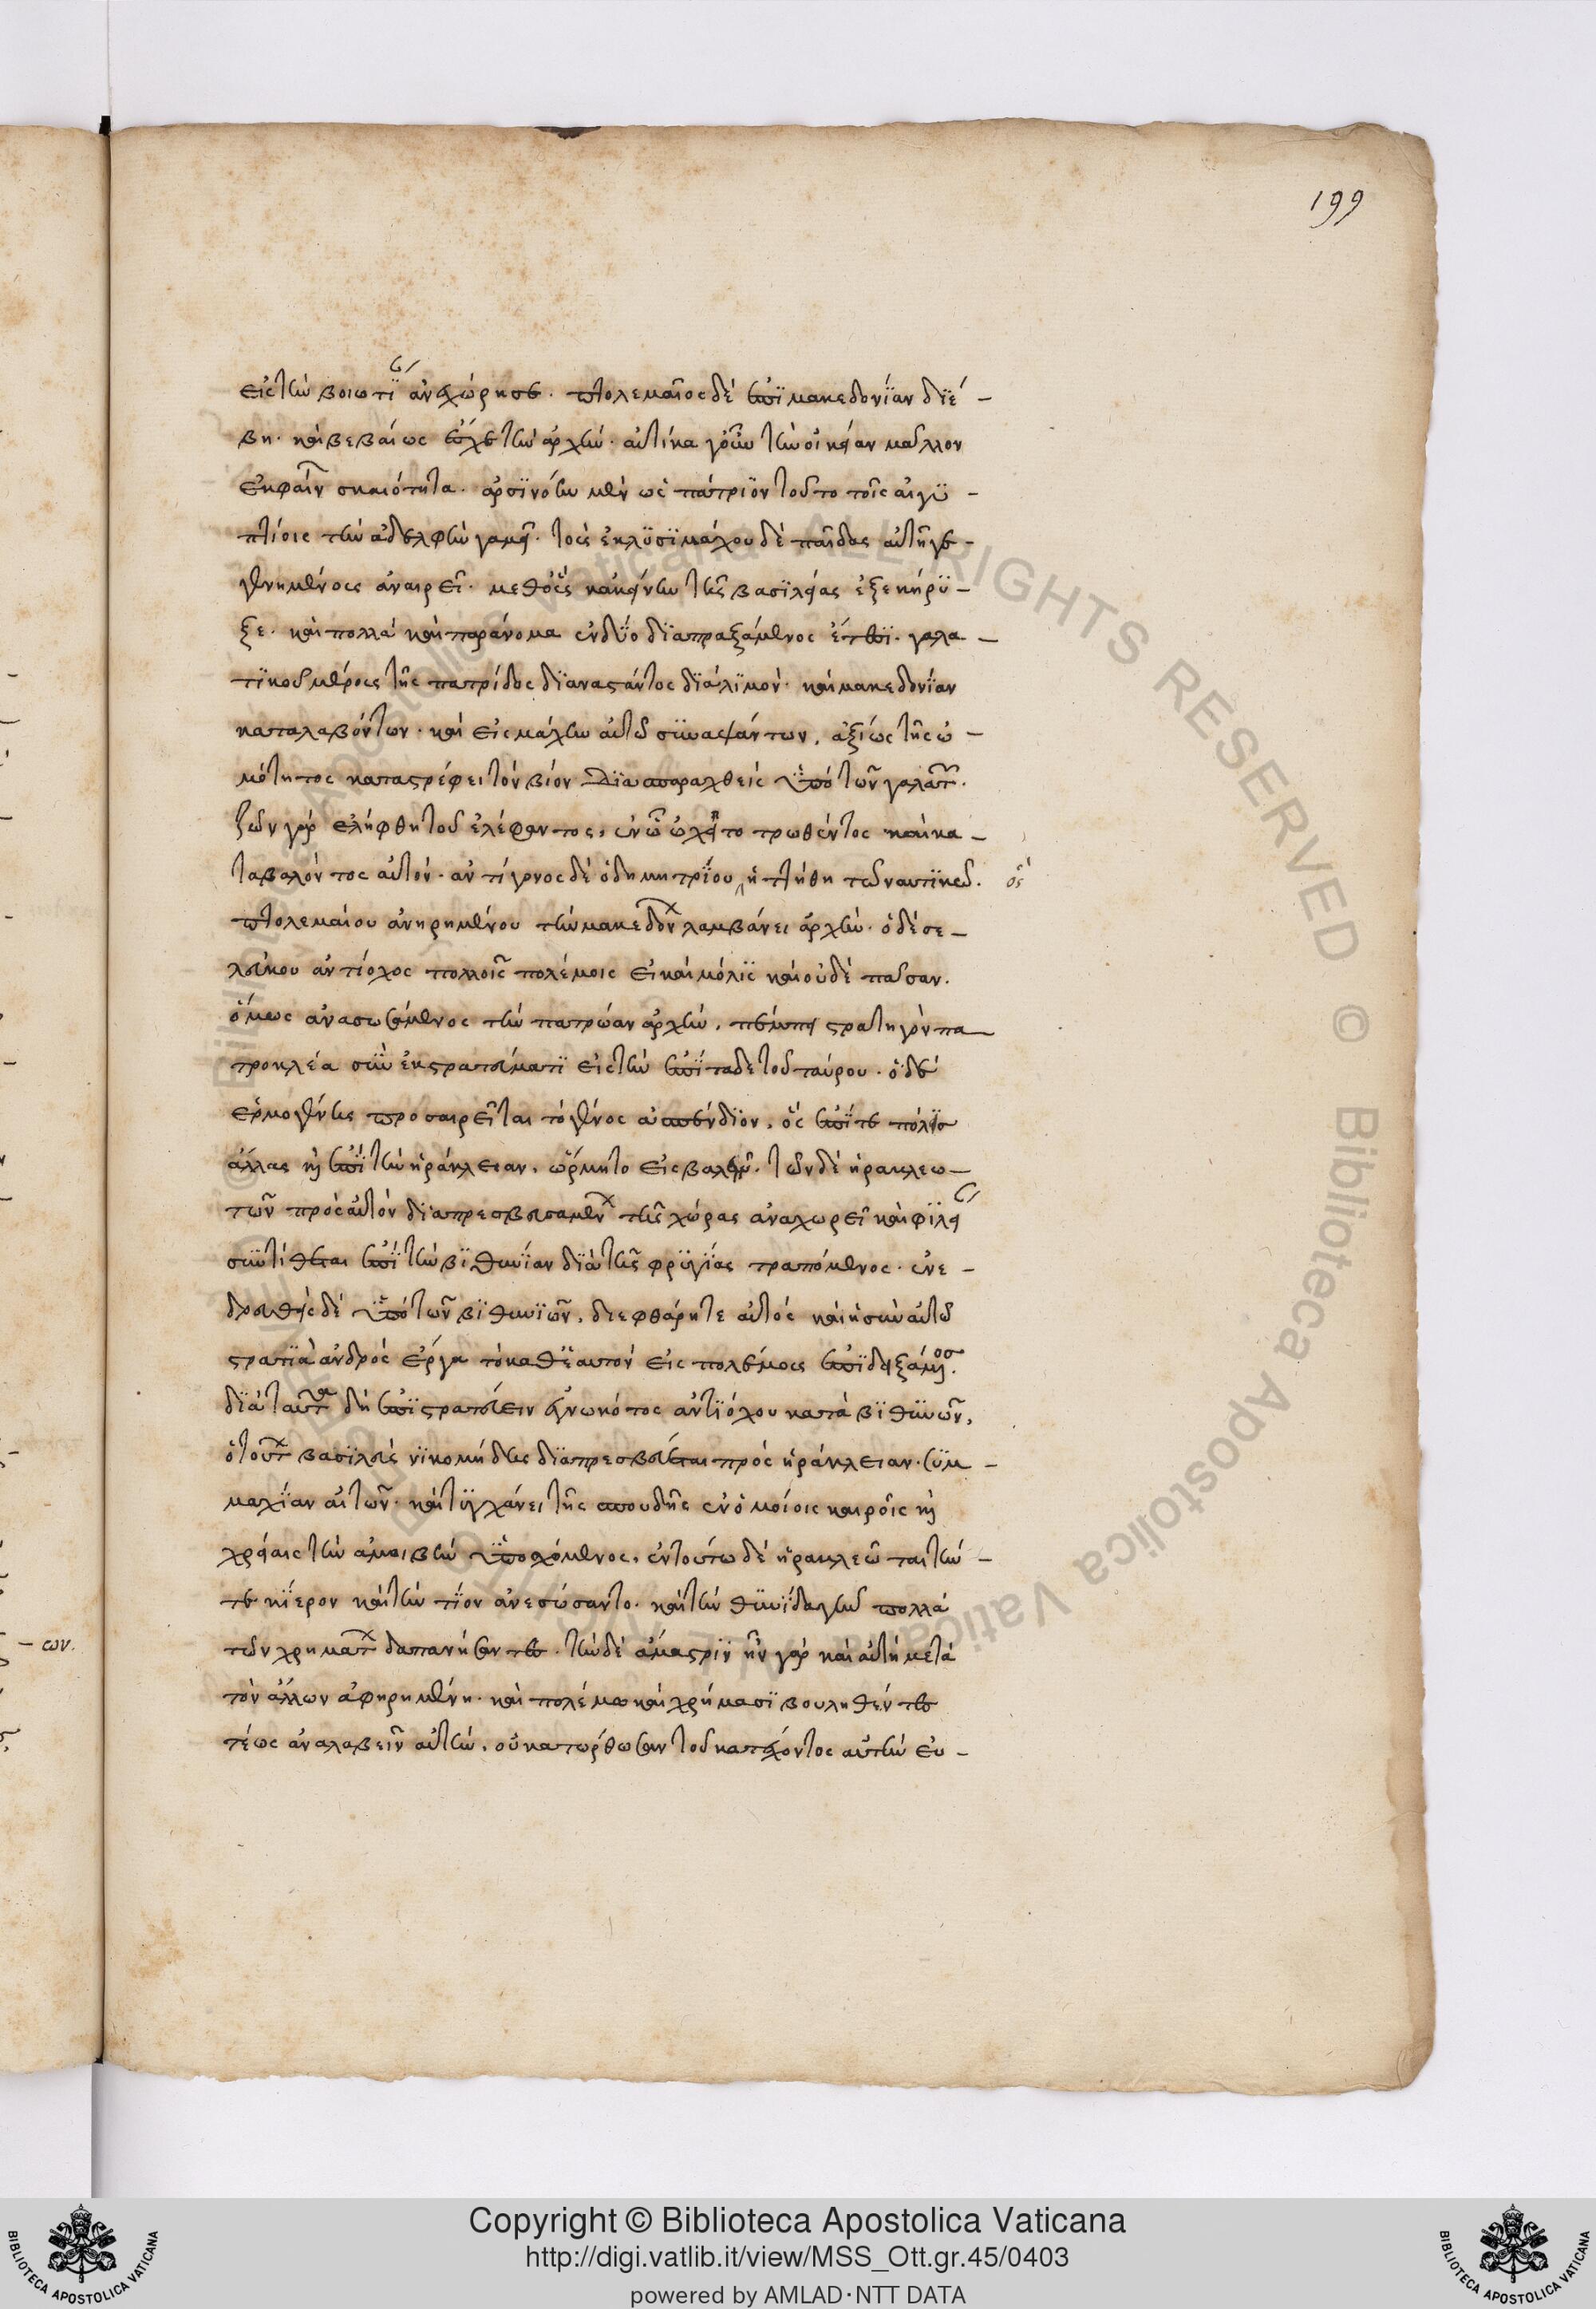 199
εἰς τὴν βοιωτΐαν ἀνεχώρησε. πτολεμαῖος δὲ ἐπῒ μακεδονΐαν δϊέ-
βη. καὶ βεβαίως ἔσχε τὴν ἀρχήν. αὐτίκα γοῦν τὴν οἰκείαν μᾶλλον
ἐκφαίνων σκαιότητα. ἀρσϊνόην μὲν ὡς πάτρϊον τοῦτο τοῖς αἰγϋ-
πτίοις τὴν ἀδελφὴν γαμεῖ. τοὺς ἐκ λϋσϊμάχου δὲ παῖδας αὐτῆ γε-
γενημένους ἀναιρεῖ. μεθ' οὓς κἀκείνην τῆς βασϊλείας ἐξεκήρϋ-
ξε. καὶ πολλὰ καὶ παράνομα ἐν δϋο δϊαπραξάμενος ἔτεσϊ. γαλα-
τϊκοῦ μέρους τῆς πατρίδος δϊαναστάντος δϊὰ λϊμὸν. καὶ μακεδονΐαν
καταλαβόντων. καὶ εἰς μάχην αὐτῶ συναψάντων, ἀξίως τῆς ὠ-
μότητος καταστρέφει τὸν βίον δϊασπαραχθεὶς ὑπὸ τῶν γαλατῶν.
ζῶν γὰρ ἐλήφθη τοῦ ἐλέφαντος, ἐν ᾧ ὠχεῖτο τρωθέντος καὶ κα-
ταβαλόντος αὐτόν. ἀντίγονος δὲ ὁ δημητρΐου ἡττήθη τῶ ναυτϊκῶ. ὃς
πτολεμαίου ἀνηρημένου τὴν μακεδόνων λαμβάνει ἀρχήν. ὁ δὲ σε-
λεύκου ἀντίοχος πολλοῖς πολέμοις εἰ καὶ μόλϊς καὶ οὐδὲ πᾶσαν.
ὅμως ἀνασωσάμενος τὴν πατρώαν ἀρχήν, πέμπει στρατηγὸν πα-
τροκλέα σὺν ἐκστρατεύματϊ εἰς τὴν ἐπΐταδε τοῦ ταύρου. ὁ δὲ
ἑρμογένης προσαιρεῖται τὸ γένος ἀσπένδϊον, ὃς ἐπΐ τε πόλεις
ἄλλας καὶ ἐπὶ τὴν ἡράκλειαν, ὥρμητο εἰσβαλεῖν. τῶν δὲ ἡρακλεω-
τῶν πρὸς αὐτὸν δϊαπρεσβευσαμένων τῆς χώρας ἀναχωρεῖ καὶ φϊλείαν
συντίθεται ἐπὶ τὴν βϊθυνΐαν δϊὰ τῆς φρϋγΐας τραπόμενος. ἐνε-
δρευθεὶς δὲ ὑπὸ τῶν βϊθυνϊῶν, διεφθάρη τε αὐτὸς καὶ ἡ σὺν αὐτῶ
στρατϊὰ ἀνδρὸς ἔργα τὸ καθ' ἑαυτὸν εἰς πολεμίους ἐπϊδειξάμενος.
δϊὰ ταῦτα δὴ ἐπϊστρατεύειν ἐγνωκότος ἀντϊόχου κατὰ βϊθϋνῶν,
ὁ τούτων βασϊλεὺς νϊκομήδης δϊαπρεσβεύεται πρὸς ἡράκλειαν. σϋμ-
μαχΐαν αἰτῶν. καὶ τϋγχάνει τῆς σπουδῆς ἐν ὁμοίοις καιροῖς καὶ
χρείαις τὴν ἀμοιβὴν ὑποσχόμενος. ἐν τούτω δὲ ἡρακλεῶται τήν-
τε κΐερον καὶ τὴν τΐον ἀνεσώσαντο. καὶ τὴν θϋνΐδα γῆν πολλὰ
τῶν χρημάτων δαπανήσαντες. τὴν δὲ ἄμαστρϊν ἦν γὰρ καὶ αὐτὴ μετὰ
τὸν ἄλλων ἀφηρημένη. καὶ πολέμω καὶ χρήμασϊ βουληθέντες
τέως ἀναλαβεῖν αὐτήν, οὐ κατώρθωσαν τοῦ κατέχοντος αὐτὴν εὐ-
-ων.
Copyright © Biblioteca Apostolica Vaticana
http://digi.vatlib.it/view/MSS_Ott.gr.45/0403
powered by AMLAD·NTT DATA
BIBLIOTECA APOSTOLICA VATICANA
BIBLIOTECA APOSTOLICA VATICANA